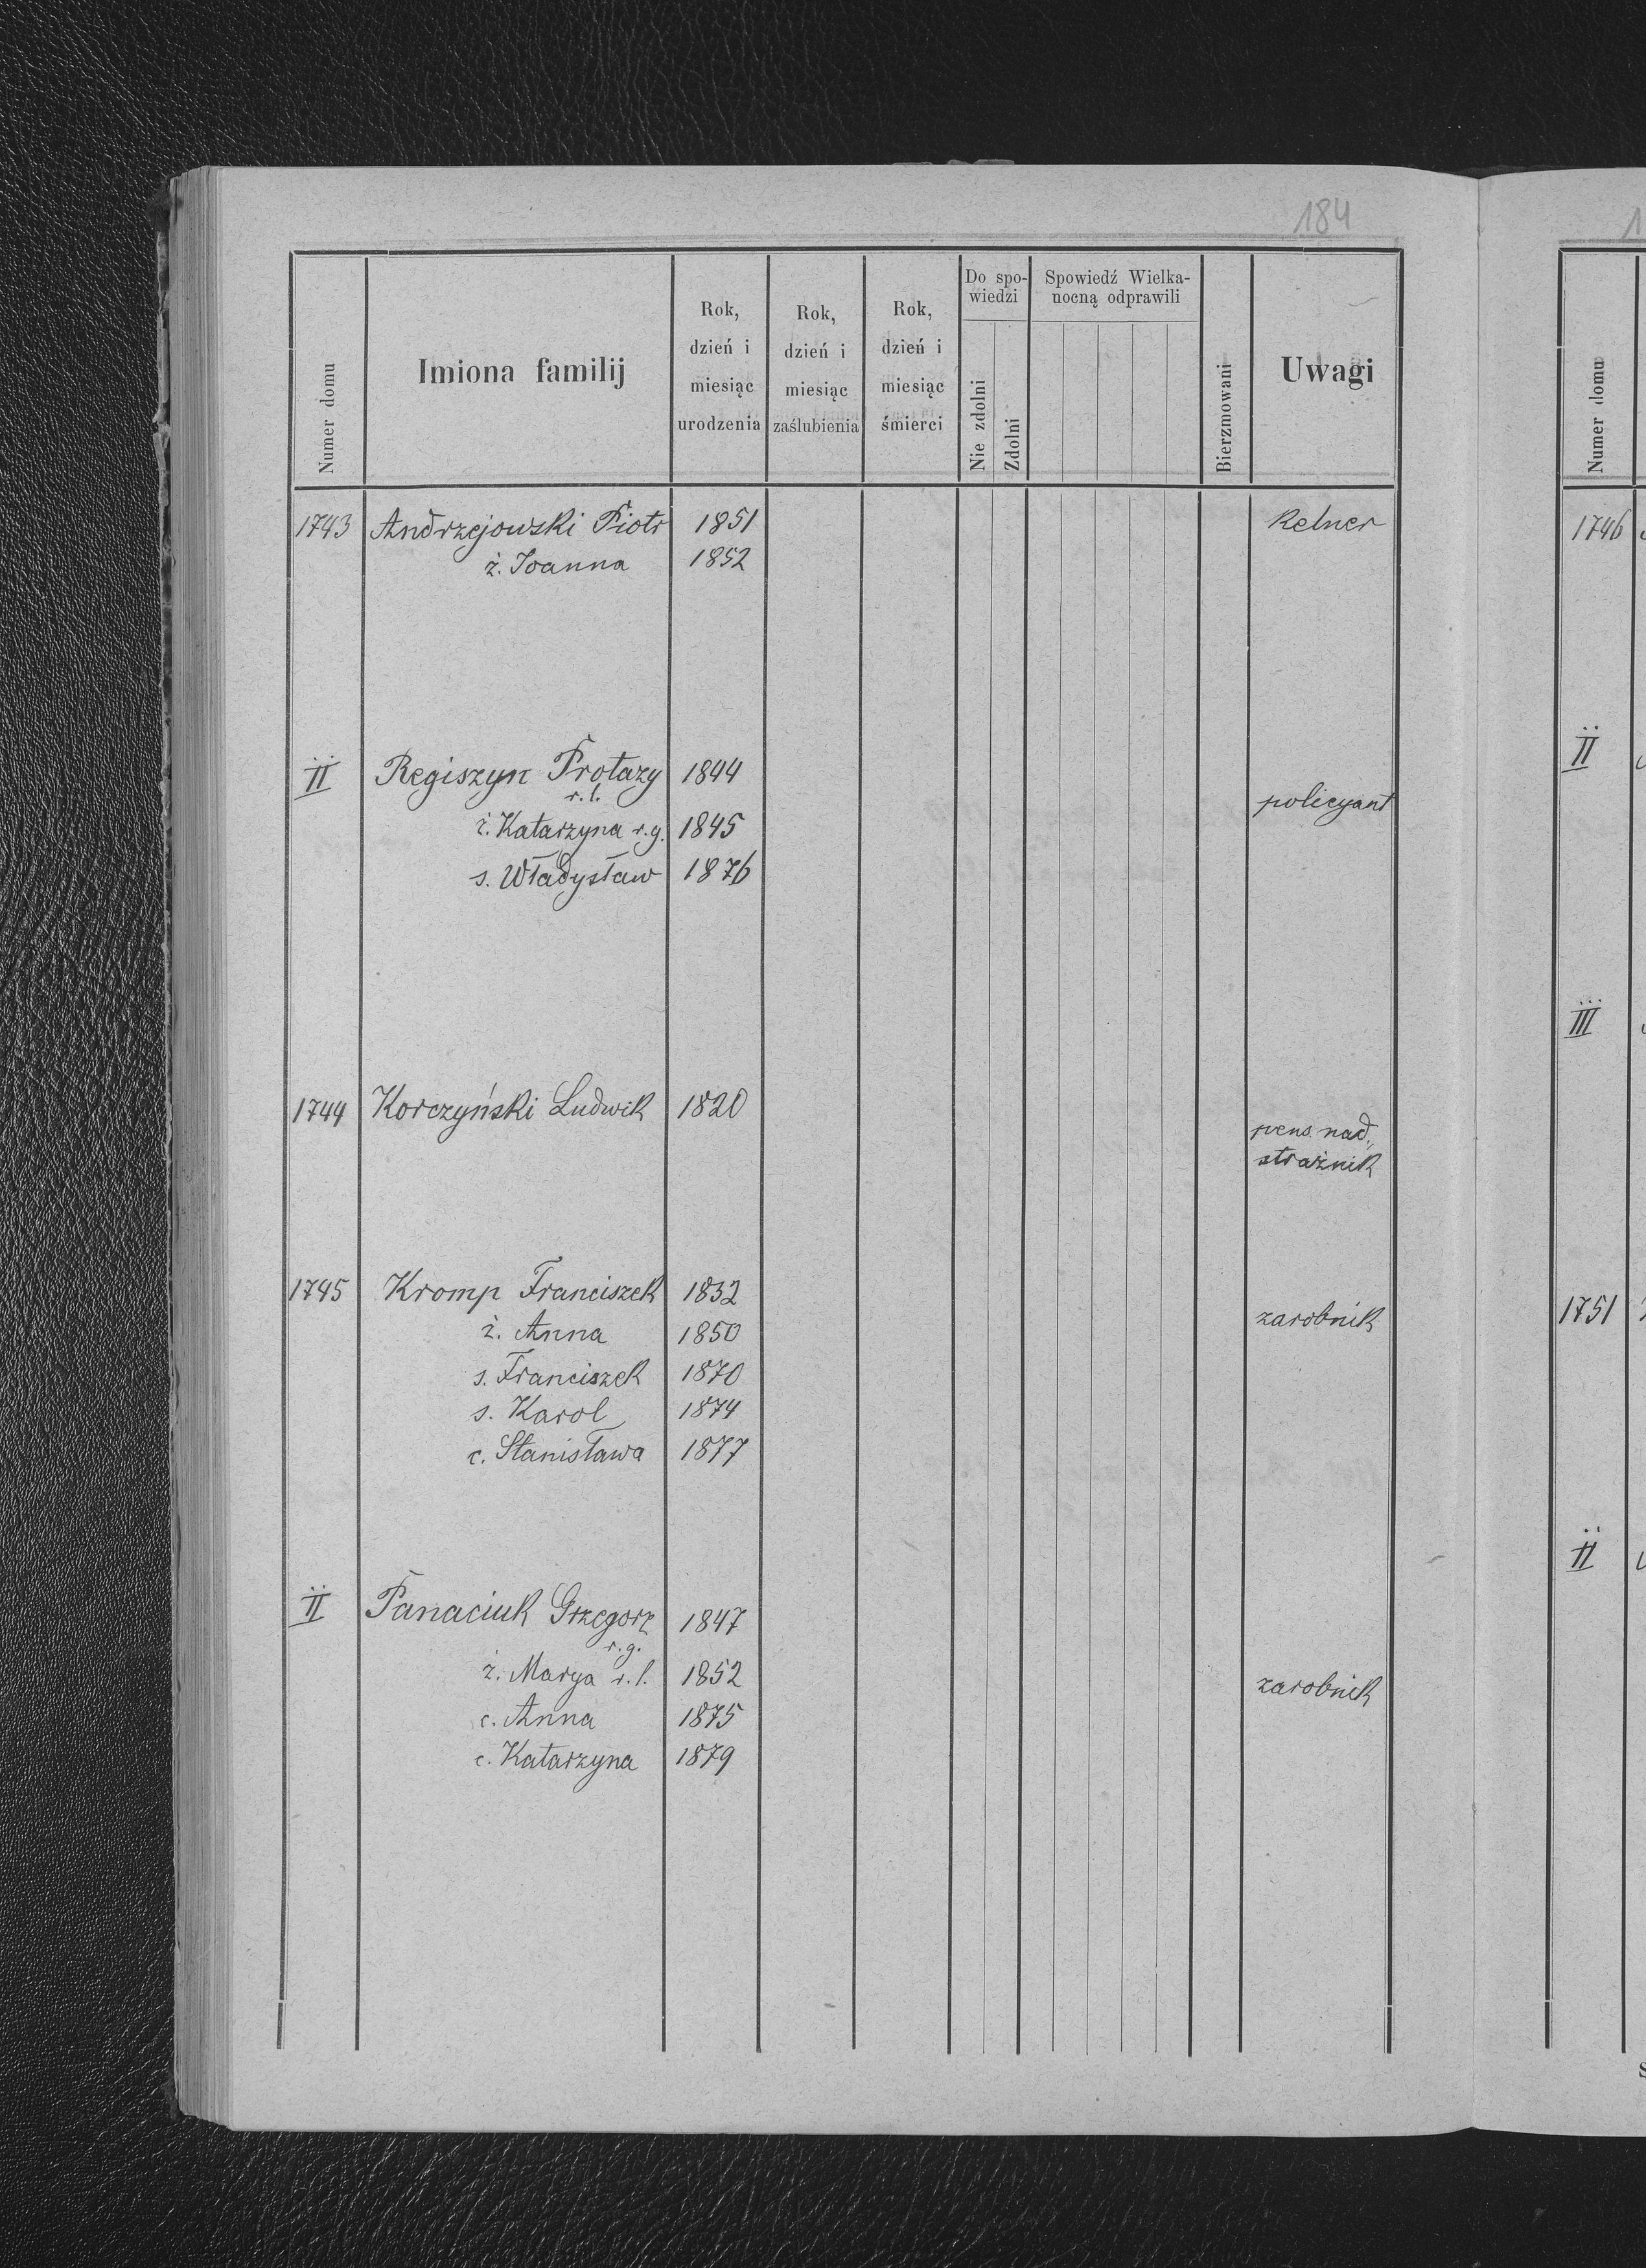 184
Numer domu
Imiona familij
Rok, dzień i miesiąc urodzenia
Rok, dzień i miesiąc zaślubienia
Rok, dzień i miesiąc śmierci
Do spowiedzi
Nie zdolni
Zdolni
Spowiedź Wielkanocną odprawili
Bierzmowani
Uwagi
1743 Andrzejowski Piotr 1851 Kelner
ż. Joanna 1852
II Regiszyn Protazy 1844
r.l. policyant
ż. Katarzyna r.g. 1845
s. Władysław 1876
1744 Korczyński Ludwik 1820
pens. nad.
strażnik
1745 Kromp Franciszek 1832
zarobnik
ż. Anna 1850
s. Franciszek 1870
s. Karol 1874
c. Stanisława 1877
II Panaciuk Grzegorz 1847
r.g.
ż. Marya r.l. 1852 zarobnik
c. Anna 1875
c. Katarzyna 1879
Numer domu
1746
II
III
1751
II